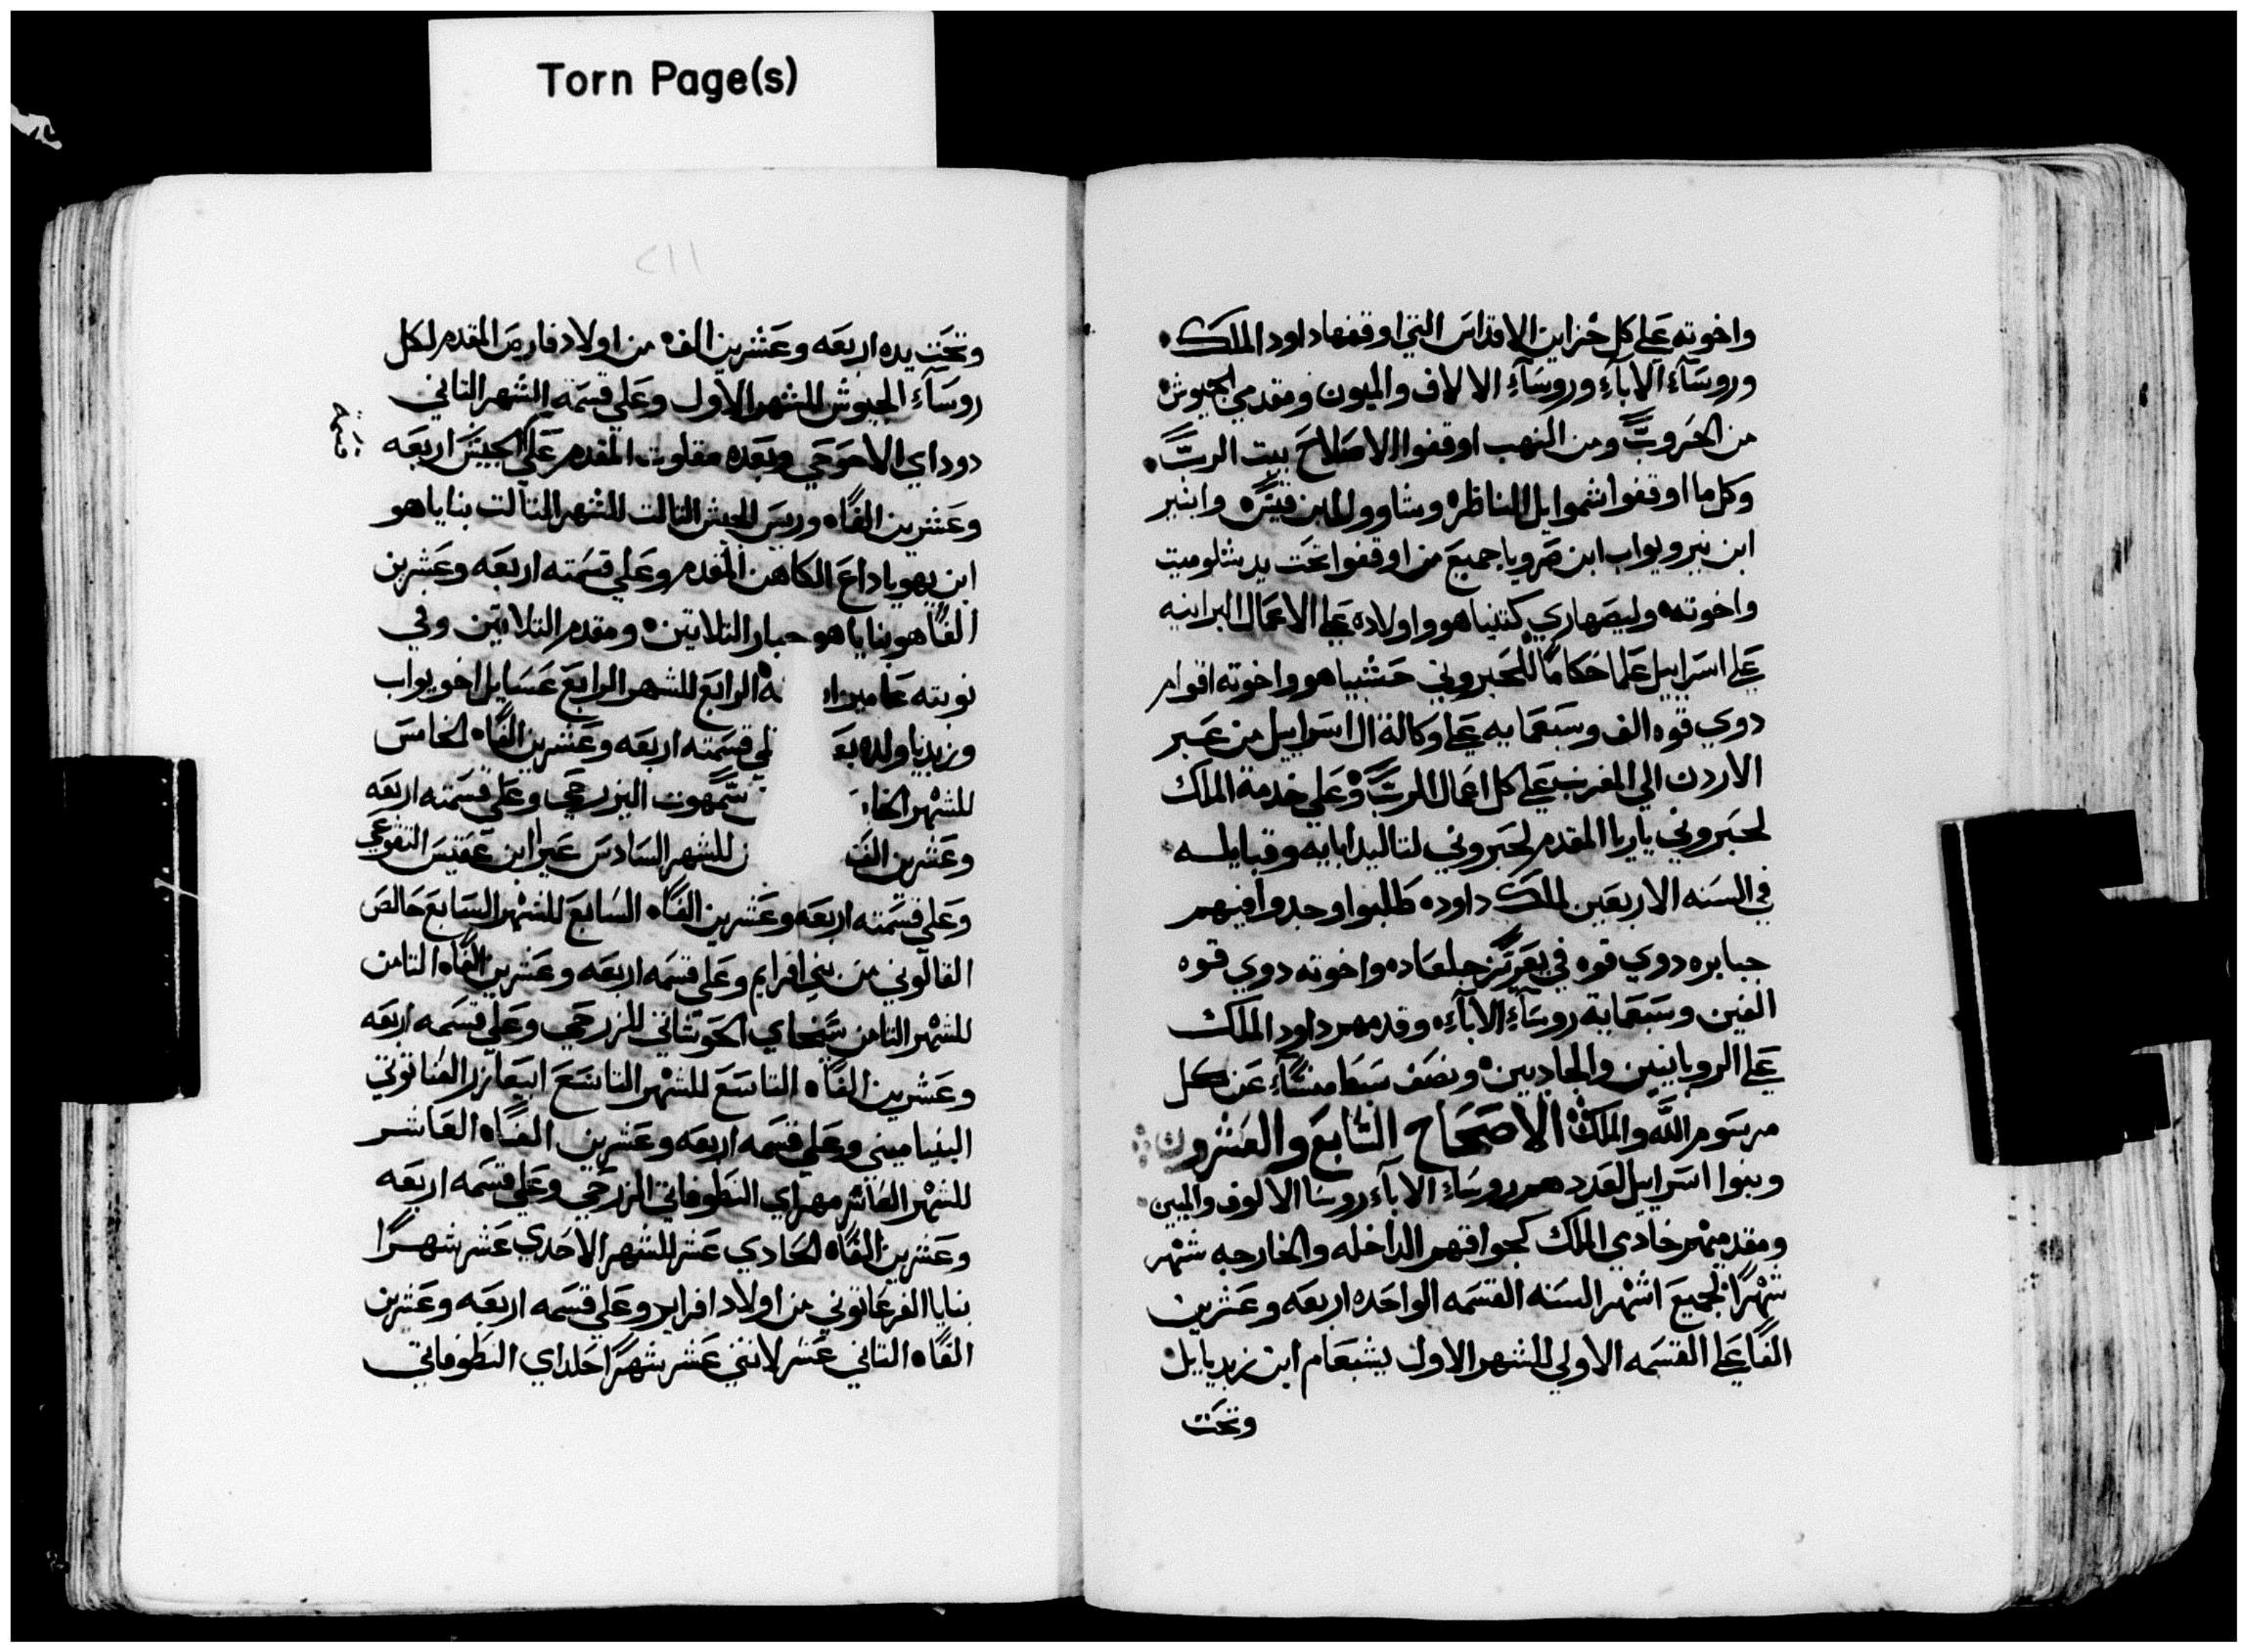 Torn Page(s)
واخوته علي كل خزاين الاقداس التي اوقفها داود الملك
وروسآء الابآء وروسآء الالاف والميون ومقدمي الجيوش
من الحروب ومن النهب اوقفوا لاصلاح بيت الرب
وكل ما اوقفوا شموايل الناظر وشاوول ابن قيش وابنير
ابن نير ويواب ابن صرويا جميع من اوقفوا تحت يد شلوميت
واخوته وليصهاري كننياهو واولاده علي الاعمال البرانيه
علي اسراييل علما حكاما للحبروني حشبياهو واخوته اقوام
دوي قوه الف وسبعمايه علي وكالة ال اسراييل من عبر
الاردن الي المغرب علي كل اعمال الرب وعلي خدمة الملك
لحبروني ياريا المقدم لحبروني لتاليد ابايه وقبايله
في السنه الاربعين لملك داود طلبوا وجدوا فيهم
جبابره دوي قوه في يعزير جلعاد واخوته دوي قوه
الفين وسبعماية روسآء الابآء وقدمهم داود الملك
علي الروبانيين والجاديين ونصف سبط منشآء عن كل
مرسوم الله والملك الاصحاح السابع والعشرون
وبنوا اسراييل لعددهم روسآء الابآء روسا الالوف والميين
ومقدميهم خادمي الملك كجواقهم الداخله والخارجه شهر
شهرًا لجميع اشهر السنه القسمه الواحده اربعه وعشرين
الفًا علي القسمه الاولي للشهر الاول يشبعام ابن زبديايل
وتحت
٢١١
وتحت يده اربعه وعشرين الف من اولاد فارص المقدم لكل
روسآء الجيوش للشهر الاول وعلي قسمة الشهر التاني
دوداي الاحوحي وبعده مقلوت المقدم علي الجيش اربعه
وعشرين الفًا وريس الجيش التالت للشهر التالت بناياهو
ابن يهوياداع الكاهن المقدم وعلي قسمته اربعه وعشرين
الفًا هو بناياهو جبار التلاتين ومقدم التلاتين وفي
نوبته عاميزا ه الرابع للشهر الرابع عسايل اخو يواب
وزبديا ولده بع لي قسمته اربعه وعشرين الفًا الخامس
للشهر الخا شمهوت اليزرحي وعلي قسمته اربعه
وعشرين الف للشهر السادس عيرا ابن عقيس التقوعي
وعلي قسمته اربعه وعشرين الفًا السابع للشهر السابع حالص
الفالوني من بني افرايم وعلي قسمه اربعه وعشرين الفًا التامن
للشهر التامن سبخاي الحوشاتي للزرحي وعلي قسمه اربعه
وعشرين الفًا التاسع للشهر التاسع ابيعازر العناتوتي
البنياميني وعلي قسمه اربعه وعشرين الفًا العاشر
للشهر العاشر مهراي النطوفاتي الزرحي وعلي قسمه اربعه
وعشرين الفًا الحادي عشر للشهر الاحدي عشر شهرًا
بنايا الفرعاتوني من اولاد افرايم وعلي قسمه اربعه وعشرين
الفًا التاني عشر لاتني عشر شهرًا حلداي النطوفاتي